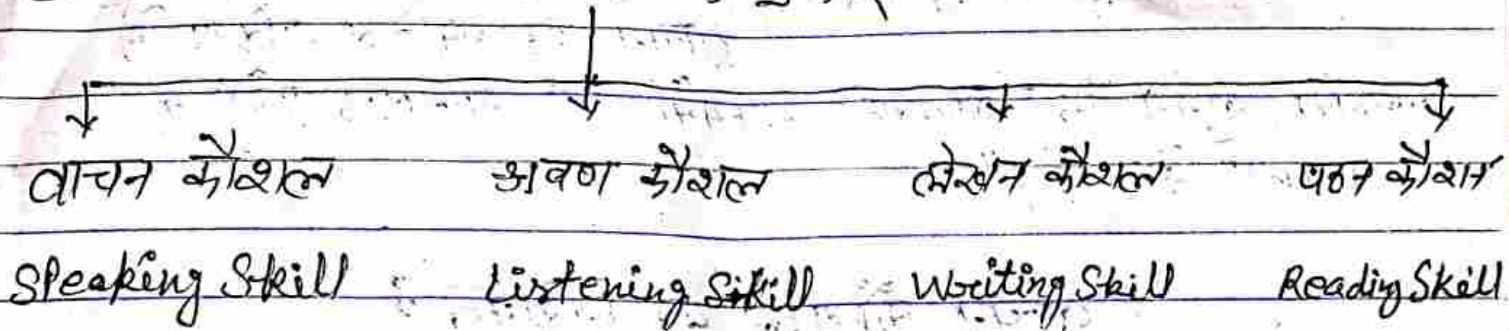 वाचन कौशल श्रवण कौशल लेखन कौशल पठन कौशल
Speaking Skill Listening Skill Writing Skill Reading Skill